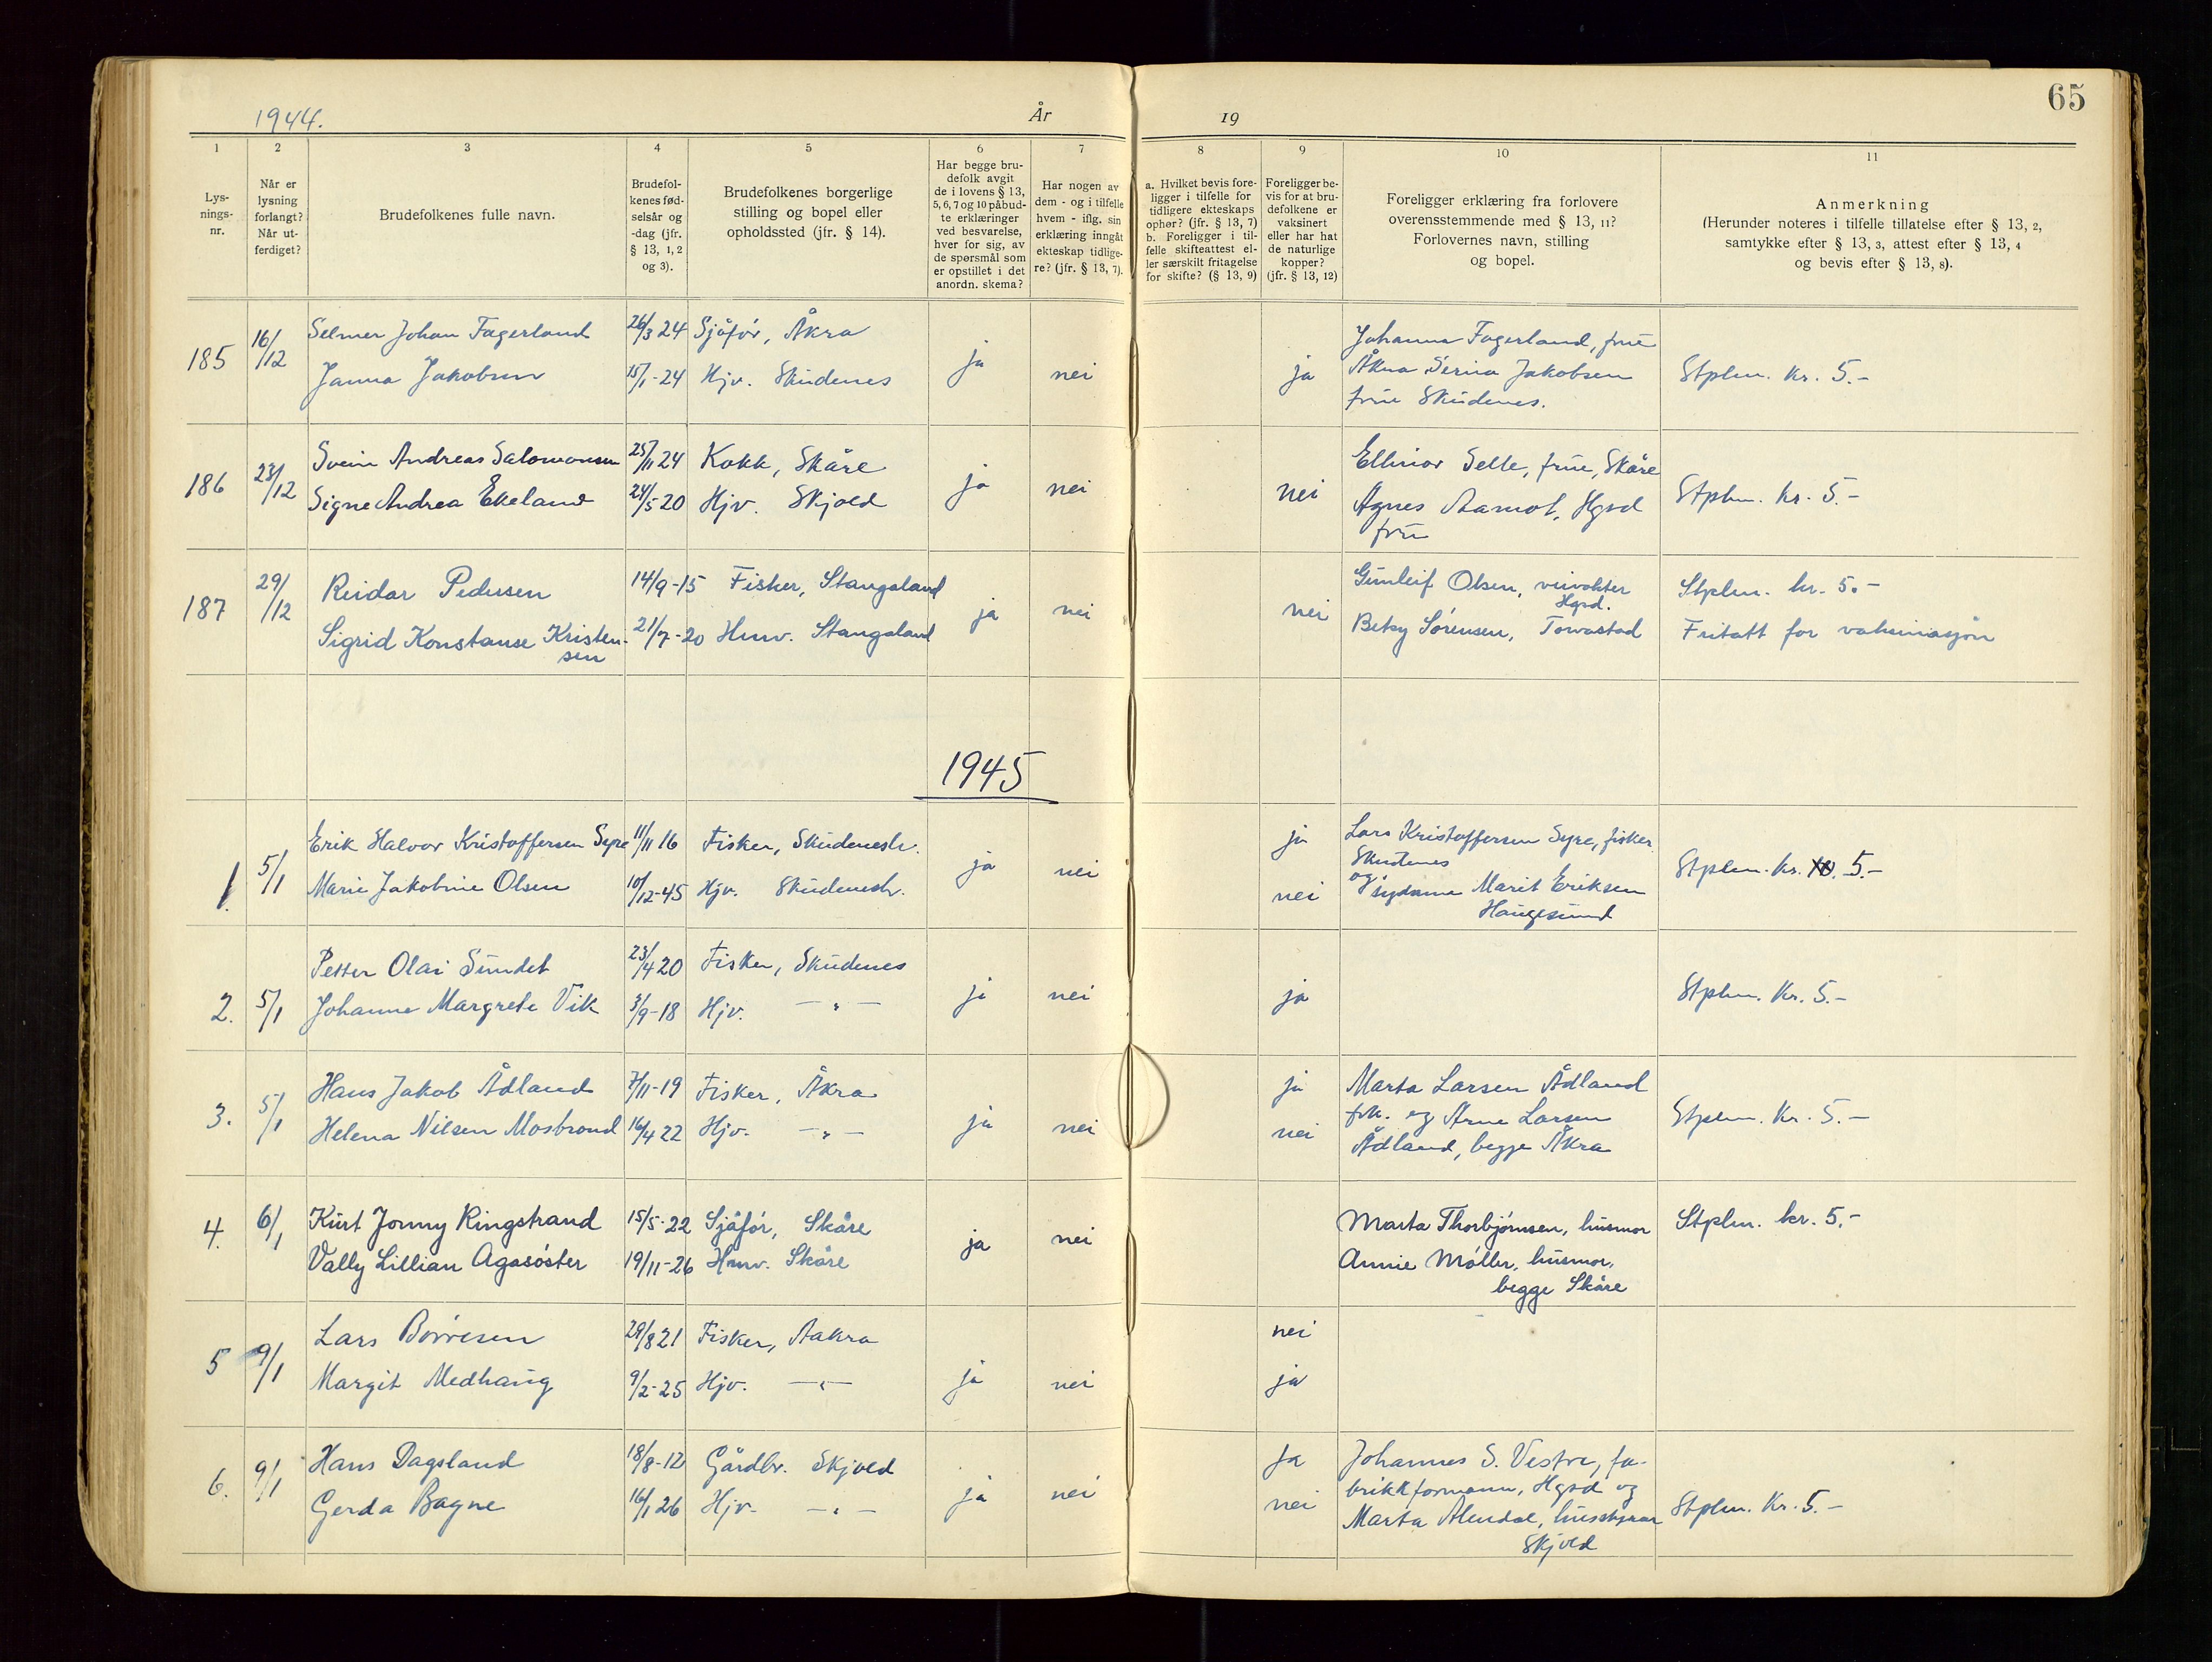 65
1944.
År
19
1 2 3 4 5 6 7 8 9 10 11
Lys-
nings-
nr.
Når er
lysning
forlangt?
Når ut-
ferdiget?
Brudefolkenes fulle navn.
Brudefol-
kenes fød-
selsår og
-dag (jfr.
§ 13, 1, 2
og 3).
Brudefolkenes borgerlige
stilling og bopel eller
opholdssted (jfr. § 14).
Har begge bru-
defolk avgit
de i lovens § 13,
5, 6, 7 og 10 påbud-
te erklæringer
ved besvarelse,
hver for sig, av
de spørsmål som
er opstillet i det
anordn. skema?
Har nogen av
dem - og i tilfelle
hvem - iflg. sin
erklæring inngåt
ekteskap tidlige-
re? (jfr. § 13, 7).
a. Hvilket bevis fore-
ligger i tilfelle for
tidligere ekteskaps
ophør? (jfr. § 13, 7)
b. Foreligger i til-
felle skifteattest el-
ler særskilt fritagelse
for skifte? (§ 13, 9)
Foreligger be-
vis for at bru-
defolkene er
vaksinert
eller har hat
de naturlige
kopper?
(jfr. § 13, 12)
Foreligger erklæring fra forlovere
overensstemmende med § 13, 11?
Forlovernes navn, stilling
og bopel.
Anmerkning
(Herunder noteres i tilfelle tillatelse efter § 13, 2,
samtykke efter § 13, 3, attest efter § 13, 4
og bevis efter § 13, 8).
185 16/12
Selmer Johan Fagerland 26/3 24 Sjåfør, Åkra
Janna Jakobsen 15/1-24 Hjv. Skudenes
ja nei ja
Johanna Fagerland, frue
Åkra Serina Jakobsen
frue Skudenes.
Stplm. Kr. 5.-
186 23/12
Svein Andreas Salomonsen 25/11 24 Kokk, Skåre
Signe Andrea Ekeland 24/5 20 Hjv. Skjold
ja nei nei
Ellinor Selle, frue, Skåre
Agnes Aamot, Hgsd
frue
Stplm. kr. 5.-
187 29/12
Reidar Pedersen 14/9-15 Fisker, Stangaland
Sigrid Konstanse Kristen-
sen 21/7-20 Hmv. Stangaland
ja nei nei
Gunleif Olsen,
Hgsd.
Betsy Sørensen, Torvastad
Stplm. kr. 5.-
Fritatt for vaksinasjon
1945
1. 5/1
Erik Halvor Kristoffersen Syre 11/11 16 Fisker, Skudenesh.
Marie Jakobine Olsen 10/12-45 Hjv. Skudenesh.
ja nei
ja
nei
Lars Kristoffersen Syre, fisker
Skudenes
og sydame Marit Eriksen
Haugesund
Stplm. Kr. 5.-
2. 5/1
Petter Olai Sundet 23/4 20 Fisker, Skudenes
Johanne Margrete Vik 3/9-18 Hjv. — " —
ja nei ja
Stplm. Kr. 5.-
3. 5/1
Hans Jakob Ådland 7/11-19 Fisker, Åkra
Helena Nilsen Mosbrond 16/4 22 Hjv. — " —
ja nei
ja
nei
Marta Larsen Ådland
frk. og Arne Larsen
Ådland, begge Åkra
Stplm. Kr. 5.-
4. 6/1
Kurt Jonny Ringstrand 15/5-22 Sjåfør, Skåre
Vally Lillian Agasøster 19/11-26 Hmv. Skåre
ja nei
Marta Thorbjørnsen, husmor
Annie Møller, husmor,
begge Skåre
Stplm. kr. 5.-
5 9/1
Lars Børresen 29/8 21 Fisker, Aakra
Margit Medhaug 9/2-25 Hjv. — " —
ja nei
nei
ja
6. 9/1
Hans Dagsland 18/8-12 Gårdbr. Skjold
Gerda Bagne 16/1 26 Hjv. — " —
ja nei
ja
nei
Johannes S. Vestre, fa-
brikkformann, Hgsd og
Marta Alendal,
Skjold
Stplm. Kr. 5.-